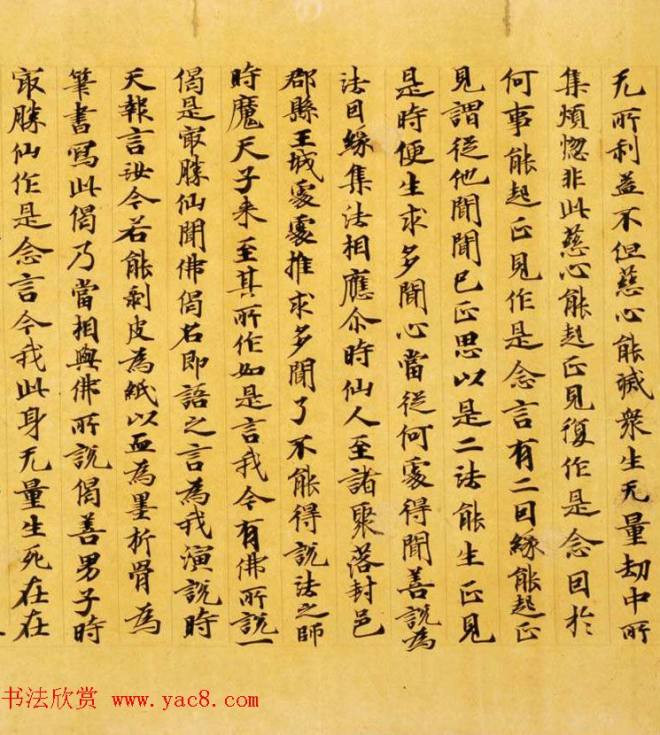 无所利益不但慈心能滅衆生无量劫中所
集煩惱非此慈心能起正見復作是念因於
何事能起正見作是念言有二因緣能起正
見謂從他聞聞已正思以是二法能生正見
是時便生求多聞心當從何處得聞善說為
法因緣集法相應尒時仙人至諸聚落封邑
郡縣王城處處推求多聞了不能得說法之師
時魔天子来至其所作如是言我今有佛所說一
偈是冣勝仙聞佛偈名即語之言為我演說時
天報言汝今若能剥皮為紙以血為墨析骨為
筆書寫此偈乃當相與佛所說偈善男子時
冣勝仙作是念言今我此身无量生死在在
书法欣赏 www.yac8.com